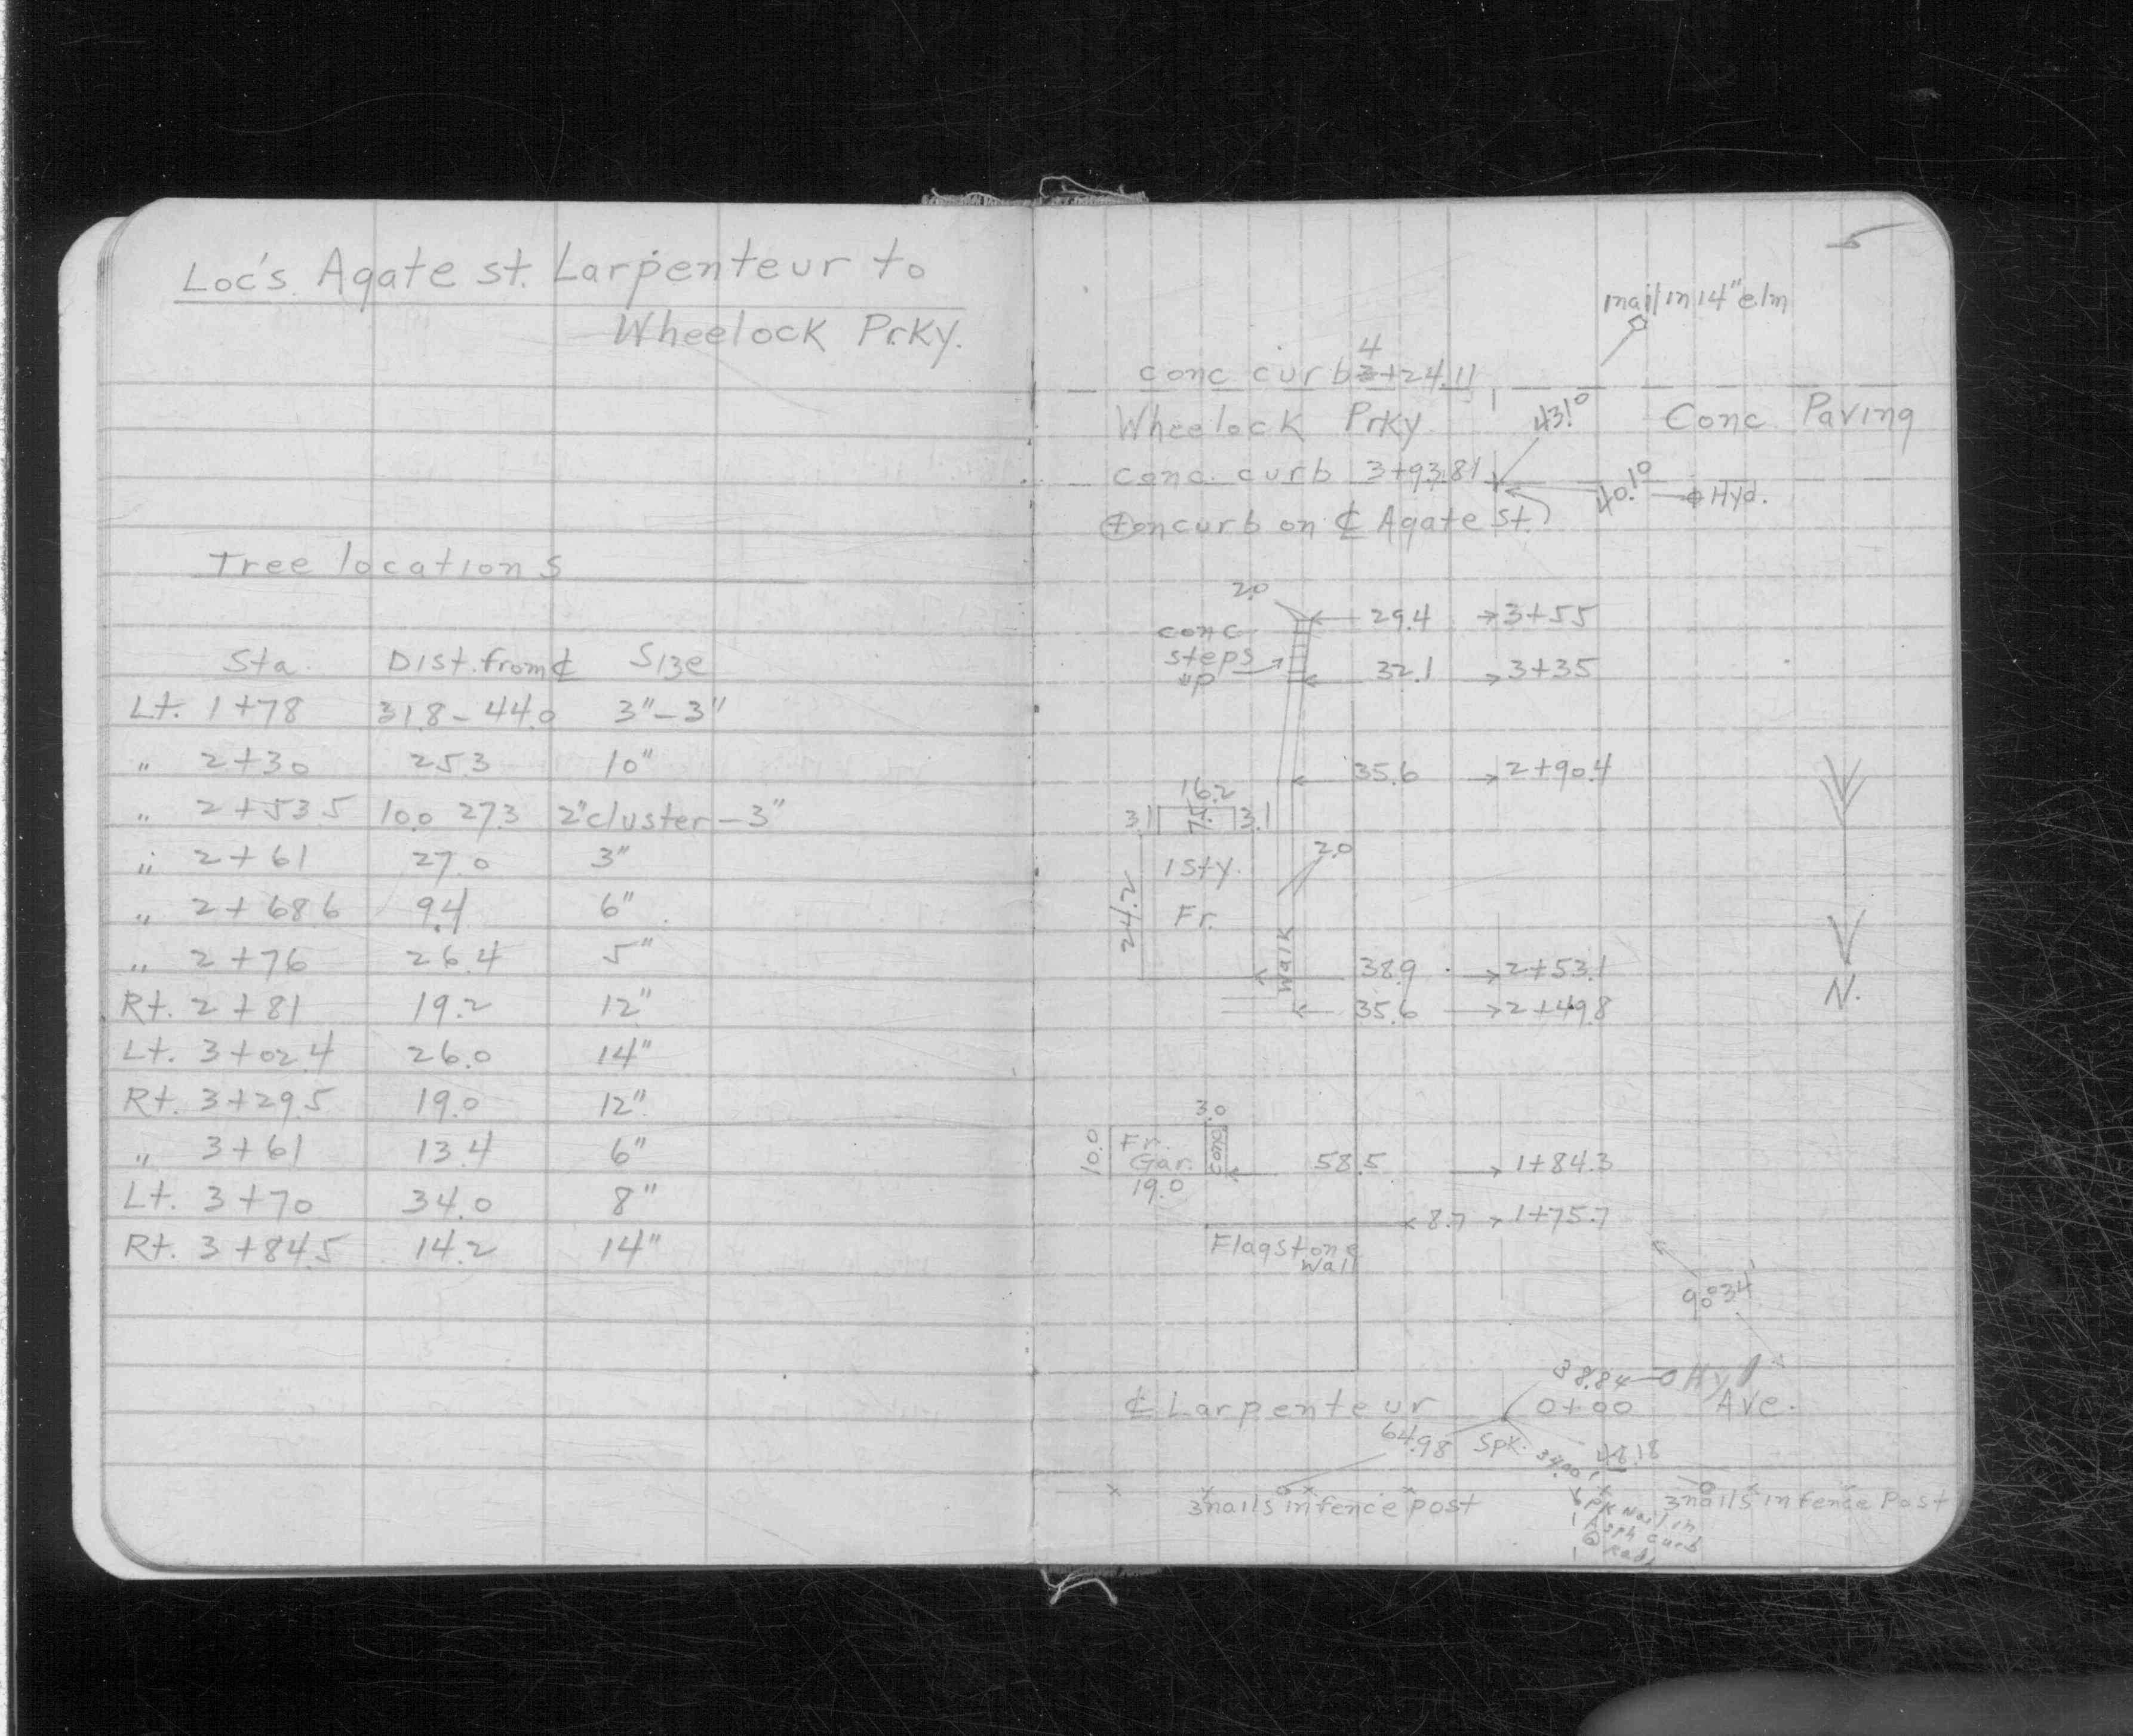 Loc's. Agate st. Larpenteur to
Wheelock Prky.
Tree locations
Sta. Dist. from ℄ Size
Lt. 1+78 31.8-44.0 3"-3"
" 2+30 25.3 10"
" 2+53.5 10.0 27.3 2"cluster-3"
" 2+61 27.0 3"
" 2+68.6 9.4 6"
" 2+76 26.4 5"
Rt. 2+81 19.2 12"
Lt. 3+02.4 26.0 14"
Rt. 3+29.5 19.0 12"
" 3+61 13.4 6"
Lt. 3+70 34.0 8"
Rt. 3+84.5 14.2 14"
5
1nail in 14" elm
4
conc curb 3+24.11
43.10
Wheelock Prky Conc. Paving
conc. curb 3+93.81
40.10 Hyd.
+ on curb on ℄ Agate st.
2.0
29.4 3+55
conc
steps
up
32.1 3+35
35.6 2+90.4
16.2
3.1 3.1
1 Sty.
Fr.
24.2
2.0
Walk
38.9 2+53.1
35.6 2+49.8
N.
3.0
10.0
Fr.
Gar.
19.0
conc
58.5 1+84.3
8.7 1+75.7
Flagstone
Wall
90°34'
38.84 Hyd
℄ Larpenteur 0+00 Ave.
64.98 Spk. 34.00 46.18
3nails in fence post
PK Nail in
Asph curb
@ Rad.
3nails in fence Post